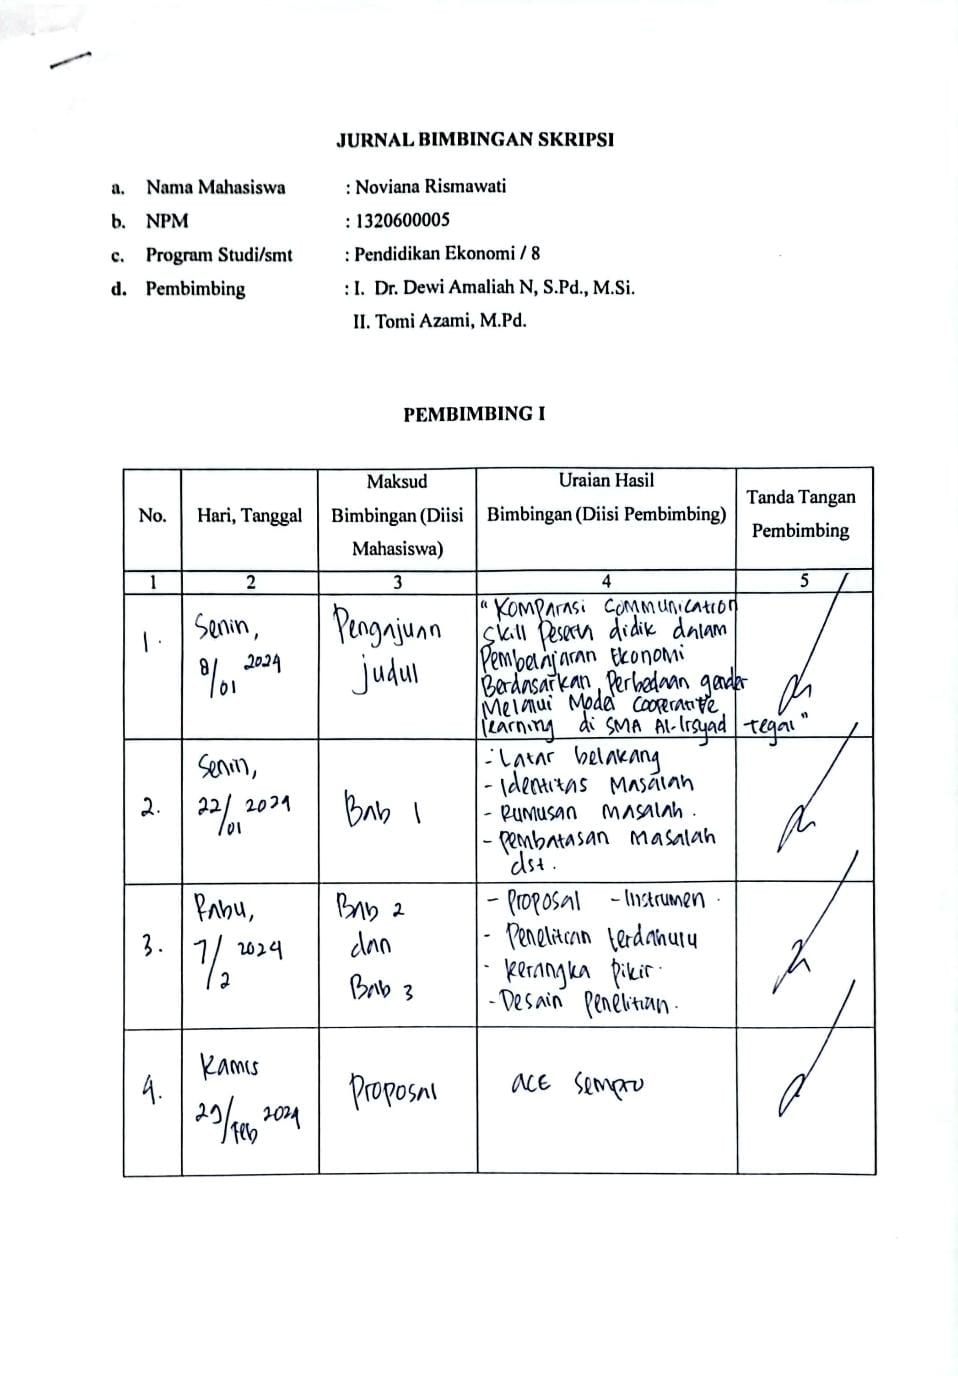 JURNAL BIMBINGAN SKRIPSI
a. Nama Mahasiswa : Noviana Rismawati
b. NPM : 1320600005
c. Program Studi/smt : Pendidikan Ekonomi / 8
d. Pembimbing : I. Dr. Dewi Amaliah N, S.Pd., M.Si.
II. Tomi Azami, M.Pd.
PEMBIMBING I
No.
Hari, Tanggal
Maksud
Bimbingan (Diisi
Mahasiswa)
Uraian Hasil
Bimbingan (Diisi Pembimbing)
Tanda Tangan
Pembimbing
1 2 3 4 5
1.
Senin,
8/01 2024
Pengajuan
judul
"Komparasi Communication
Skill Peserta didik dalam
Pembelajaran Ekonomi
Berdasarkan Perbedaan gender
Melalui Model Cooperative
learning di SMA Al-Irsyad tegal"
2.
Senin,
22/01 2024
Bab 1
- Latar belakang
- Identitas Masalah
- Rumusan Masalah.
- Pembatasan Masalah
dst.
3.
Rabu,
7/2 2024
Bab 2
dan
Bab 3
- Proposal - Instrumen
- Penelitian terdahulu
- kerangka pikir.
- Desain Penelitian.
4.
Kamis
29/Feb 2024
Proposal
ACE sempro